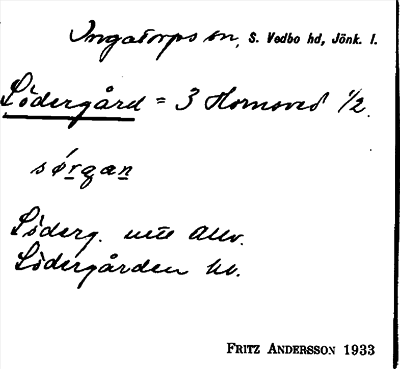 Ingatorps sn, S. Vedbo hd, Jönk. l.
Södergård = 3 Hornsved 1/2.
sǿrgan
Söderg. ute Allv.
Södergården bb.
FRITZ ANDERSSON 1933